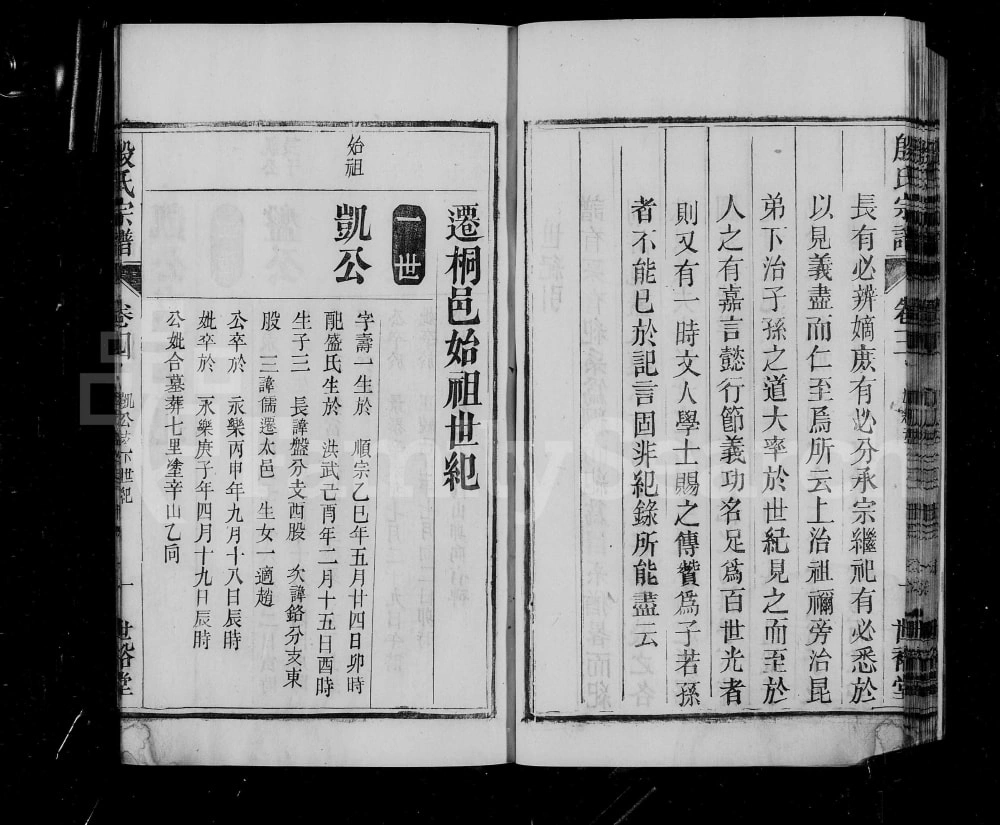 長有必辨嫡庶有必分承宗繼祀有必悉於
以見義盡而仁至爲所云上治祖禰旁治昆
弟下治子孫之道大率於世紀見之而至於
人之有嘉言懿行節義功名足爲百世光者
則又有一時文人學士賜之傳贊爲子若孫
者不能已於記言固非紀錄所能盡云
遷桐邑始祖世紀
一世
始祖
凱公
字壽一生於 順宗乙巳年五月廿四日卯時
配盛氏生於 洪武己酉年二月十五日酉時
生子三 長諱盤分支西股 次諱鉻分支東
股 三諱儒遷太邑 生女一適趙
公卒於 永樂丙申年九月十八日辰時
妣卒於 永樂庚子年四月十九日辰時
公妣合墓葬七里塗辛山乙向
殷氏宗譜 卷四 凱公 下世紀 一 世裕堂